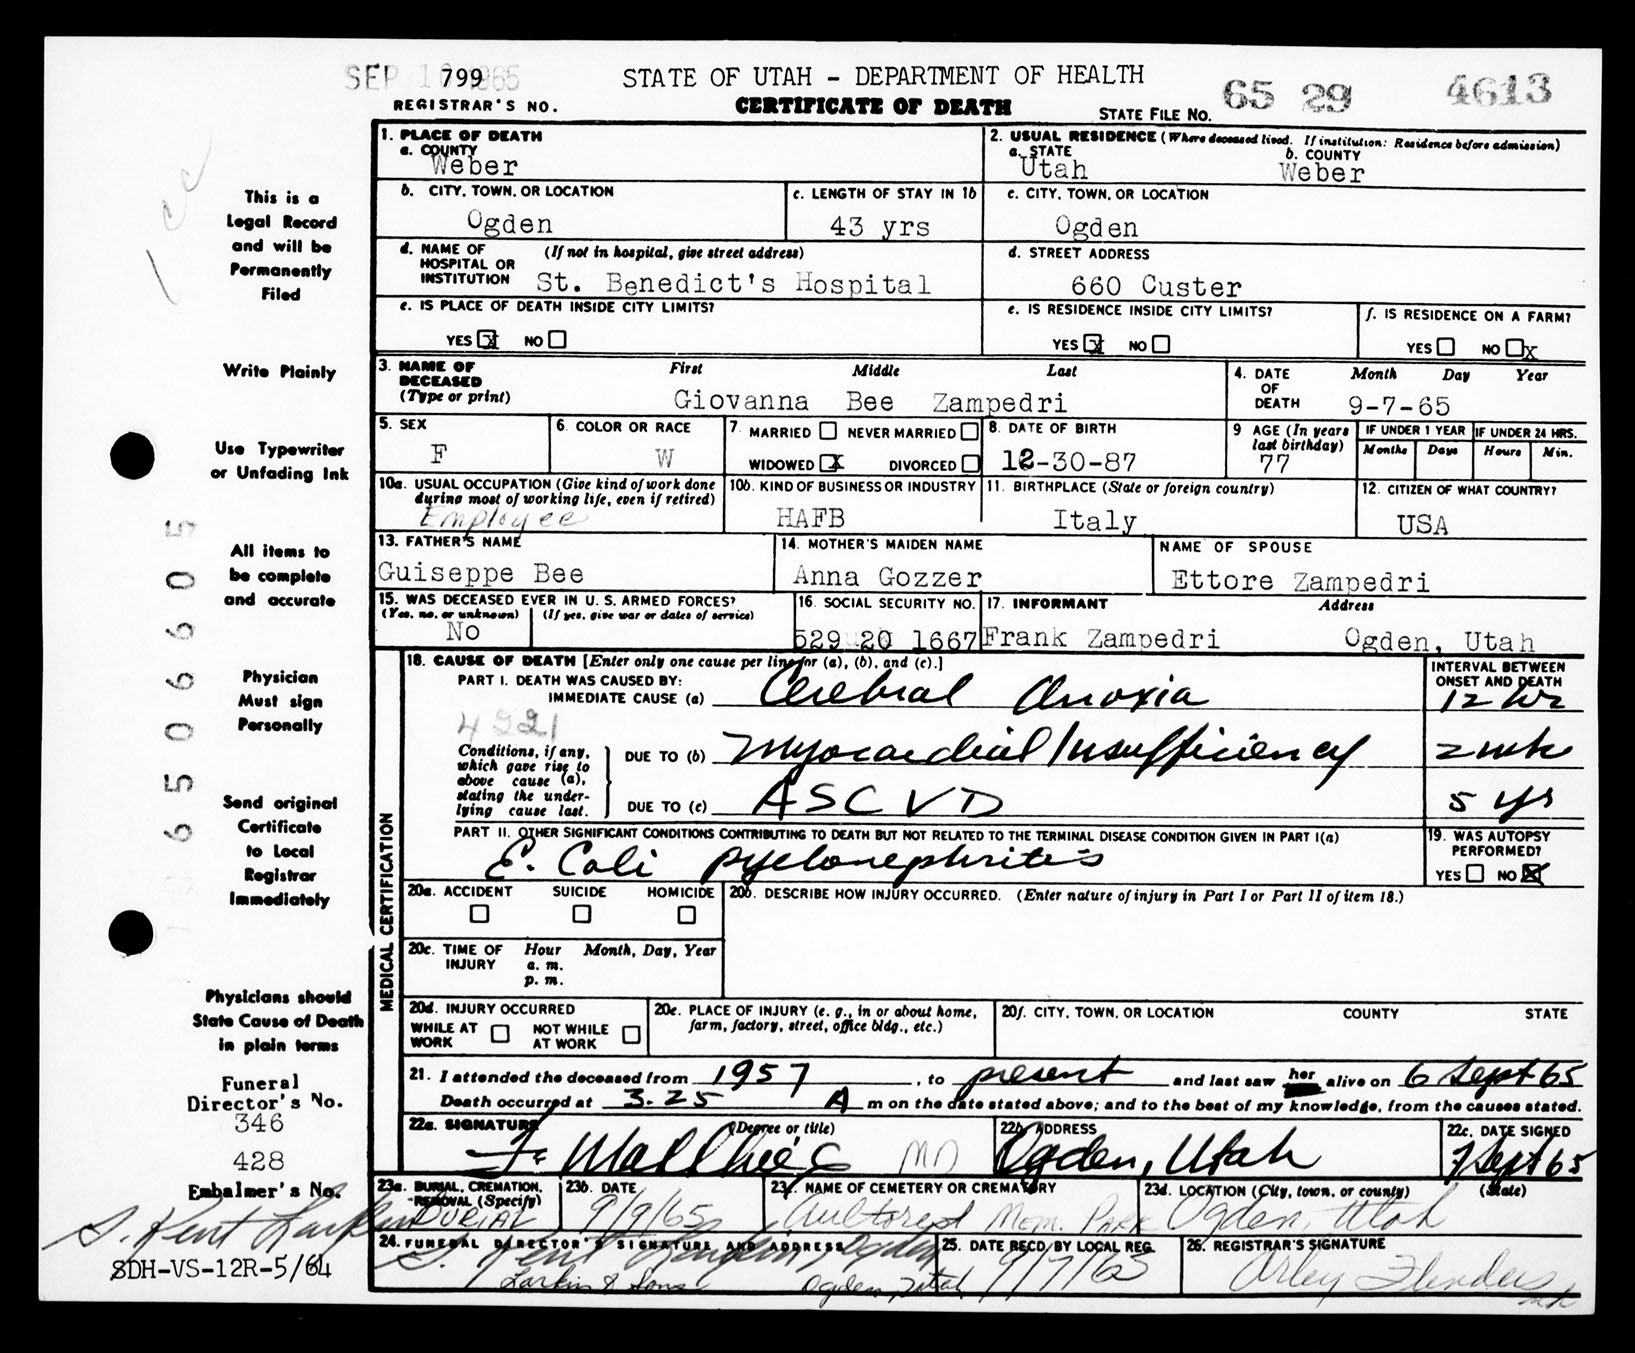 SEP 10 1965
799 STATE OF UTAH - DEPARTMENT OF HEALTH
REGISTRAR'S NO. CERTIFICATE OF DEATH STATE FILE NO. 65 29 4613
1. PLACE OF DEATH
a. COUNTY
Weber
2. USUAL RESIDENCE (Where deceased lived. If institution: Residence before admission)
a. STATE b. COUNTY
Utah Weber
b. CITY, TOWN, OR LOCATION
Ogden
c. LENGTH OF STAY IN 1b
43 yrs
c. CITY, TOWN, OR LOCATION
Ogden
d. NAME OF HOSPITAL OR INSTITUTION (If not in hospital, give street address)
St. Benedict's Hospital
d. STREET ADDRESS
660 Custer
e. IS PLACE OF DEATH INSIDE CITY LIMITS?
YES X NO
e. IS RESIDENCE INSIDE CITY LIMITS?
YES X NO
f. IS RESIDENCE ON A FARM?
YES NO X
3. NAME OF DECEASED (Type or print)
First Middle Last
Giovanna Bee Zampedri
4. DATE OF DEATH
Month Day Year
9-7-65
5. SEX
F
6. COLOR OR RACE
W
7. MARRIED NEVER MARRIED
WIDOWED X DIVORCED
8. DATE OF BIRTH
12-30-87
9 AGE (In years last birthday)
77
IF UNDER 1 YEAR
Months Days
IF UNDER 24 HRS.
Hours Min.
10a. USUAL OCCUPATION (Give kind of work done during most of working life, even if retired)
Employee
10b. KIND OF BUSINESS OR INDUSTRY
HAFB
11. BIRTHPLACE (State or foreign country)
Italy
12. CITIZEN OF WHAT COUNTRY?
USA
13. FATHER'S NAME
Guiseppe Bee
14. MOTHER'S MAIDEN NAME
Anna Gozzer
NAME OF SPOUSE
Ettore Zampedri
15. WAS DECEASED EVER IN U. S. ARMED FORCES?
(Yes, no, or unknown) (If yes, give war or dates of service)
No
16. SOCIAL SECURITY NO.
529 20 1667
17. INFORMANT Address
Frank Zampedri Ogden, Utah
MEDICAL CERTIFICATION
18. CAUSE OF DEATH [Enter only one cause per line for (a), (b), and (c).]
PART I. DEATH WAS CAUSED BY:
IMMEDIATE CAUSE (a) Cerebral Anoxia
INTERVAL BETWEEN ONSET AND DEATH
12 hr
4221
Conditions, if any, which gave rise to above cause (a), stating the underlying cause last.
DUE TO (b) Myocardial Insufficiency 2 wk
DUE TO (c) ASCVD 5 yr
PART II. OTHER SIGNIFICANT CONDITIONS CONTRIBUTING TO DEATH BUT NOT RELATED TO THE TERMINAL DISEASE CONDITION GIVEN IN PART I(a)
E. Coli pyelonephritis
19. WAS AUTOPSY PERFORMED?
YES NO X
20a. ACCIDENT SUICIDE HOMICIDE
20b. DESCRIBE HOW INJURY OCCURRED. (Enter nature of injury in Part I or Part II of item 18.)
20c. TIME OF INJURY Hour Month, Day, Year
a. m.
p. m.
20d. INJURY OCCURRED
WHILE AT WORK NOT WHILE AT WORK
20e. PLACE OF INJURY (e. g., in or about home, farm, factory, street, office bldg., etc.)
20f. CITY, TOWN, OR LOCATION COUNTY STATE
21. I attended the deceased from 1957, to present and last saw her alive on 6 Sept 65
Death occurred at 3.25 A m on the date stated above; and to the best of my knowledge, from the causes stated.
22a. SIGNATURE (Degree or title)
MD
22b. ADDRESS
Ogden, Utah
22c. DATE SIGNED
7 Sept 65
23a. BURIAL, CREMATION, REMOVAL (Specify)
BURIAL
23b. DATE
9/9/65
23c. NAME OF CEMETERY OR CREMATORY
Aultorest Mem. Park
23d. LOCATION (City, town, or county) (State)
Ogden, Utah
24. FUNERAL DIRECTOR'S SIGNATURE AND ADDRESS
S. Kent Larkin Ogden
Larkin & Sons Ogden, Utah
25. DATE REC'D BY LOCAL REG.
9/7/65
26. REGISTRAR'S SIGNATURE
Arley Flinders
This is a
Legal Record
and will be
Permanently
Filed
Write Plainly
Use Typewriter
or Unfading Ink
All items to
be complete
and accurate
Physician
Must sign
Personally
Send original
Certificate
to Local
Registrar
Immediately
Physicians should
State Cause of Death
in plain terms
Funeral
Director's No.
346
428
Embalmer's No.
S. Kent Larkin
SDH-VS-12R-5/64
6506605